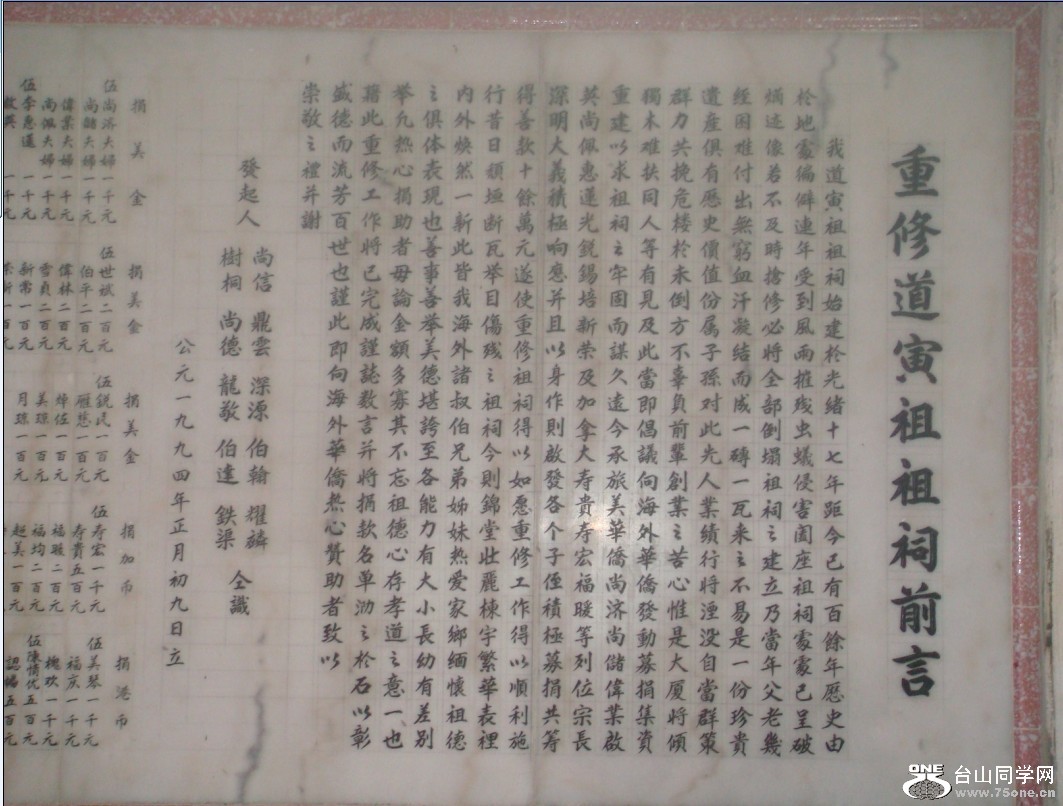 重修道寅祖祖祠前言
我道寅祖祖祠始建於光緒十七年距今已有百餘年歷史由
於地處偏僻連年受到風雨摧残虫蟻侵害闔座祖祠處處已呈破
爛迹像若不及時搶修必將全部倒塌祖祠之建立乃當年父老幾
經困难付出無窮血汗凝结而成一磚一瓦来之不易是一份珍貴
遺産俱有歷史價值份属子孫对此先人業績行將湮没自當群策
群力共挽危楼於未倒方不辜負前輩創業之苦心惟是大厦將傾
獨木难扶同人等有見及此當即倡議向海外華僑發動募捐集資
重建以求祖祠之牢固而謀久遠今承旅美華僑尚济尚儲偉業啟
英尚佩惠蓮光銳錫培新荣及加拿大寿貴寿宏福暖等列位宗長
深明大義積極响應并且以身作則啟發各个子侄積極募捐共筹
得善款十餘萬元遂使重修祖祠得以如愿重修工作得以順利施
行昔日頹垣断瓦举目傷残之祖祠今則錦堂壮麗棟宇繁華表裡
内外焕然一新此皆我海外諸叔伯兄弟姊妹热爱家鄉缅懷祖德
之俱体表現也善事善举美德堪誇至各能力有大小長幼有差别
举凡热心捐助者毋論金額多寡其不忘祖德心存孝道之意一也
藉此重修工作將已完成謹誌数言并將捐款名单泐之於石以彰
盛德而流芳百世也謹此即向海外華僑热心贊助者致以
崇敬之禮并謝
發起人
尚信 鼎雲 深源 伯翰 耀麟
樹桐 尚德 龍敬 伯達 鉄渠 仝識
公元一九九四年正月初九日立
捐美金
伍尚济夫婦一千元
尚儲夫婦一千元
偉業夫婦一千元
尚佩夫婦一千元
伍李惠蓮一千元
啟英 一千元
捐美金
伍世斌二百元
伯平二百元
偉林二百元
雪貞二百元
新常一百元
荣新一百元
捐美金
伍銳民一百元
雁慈一百元
焯佐一百元
美琼一百元
月琼一百元
捐加币
伍寿宏一千元
寿貴五百元
福暖二百元
福均二百元
超美一百元
捐港币
伍美琴一千元
福庆一千元
槐欢一千元
伍陈情优五百元
認婦五百元
ONE 台山同学网
www.75one.cn